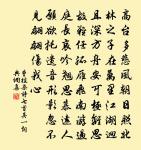 高臺多悲風朝日照北
林之子在萬里江湖迥
且深方舟安可極離思
故難任孤雁飛南游過
庭長哀吟翹思慕遠人
願欲托遺音形影忽不
見翩翩傷我心
曹植雜詩七首其一詞
典網集